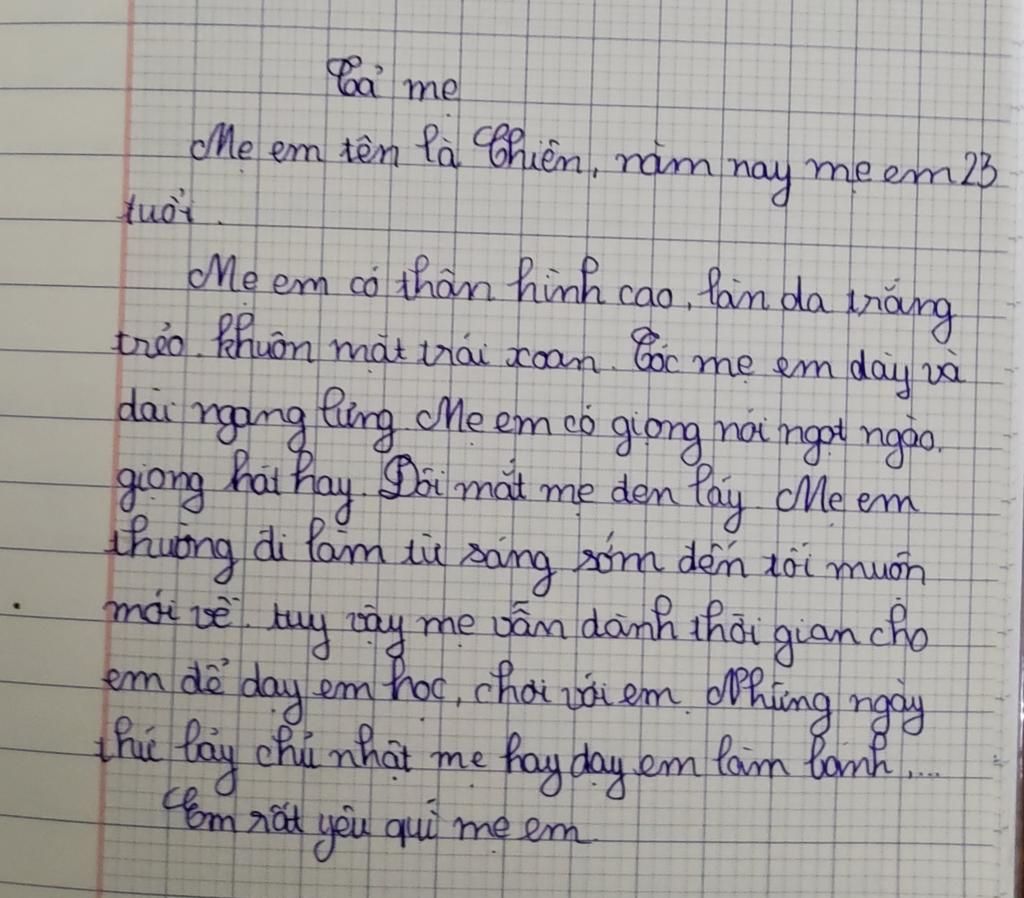 Tả mẹ
Mẹ em tên là Thiên, năm nay mẹ em 23
tuổi.
Mẹ em có thân hình cao, làn da trắng
trẻo. khuôn mặt trái xoan. Tóc mẹ em dày và
dài ngang lưng Mẹ em có giọng nói ngọt ngào.
giọng hát hay. Đôi mắt mẹ đen láy Mẹ em
thường đi làm từ sáng sớm đến tối muôn
mới về. tuy vậy mẹ vẫn dành thời gian cho
em để dạy em học, chơi với em. Những ngày
thứ bảy chủ nhật mẹ hay dạy em làm bánh,...
Em rất yêu quí mẹ em